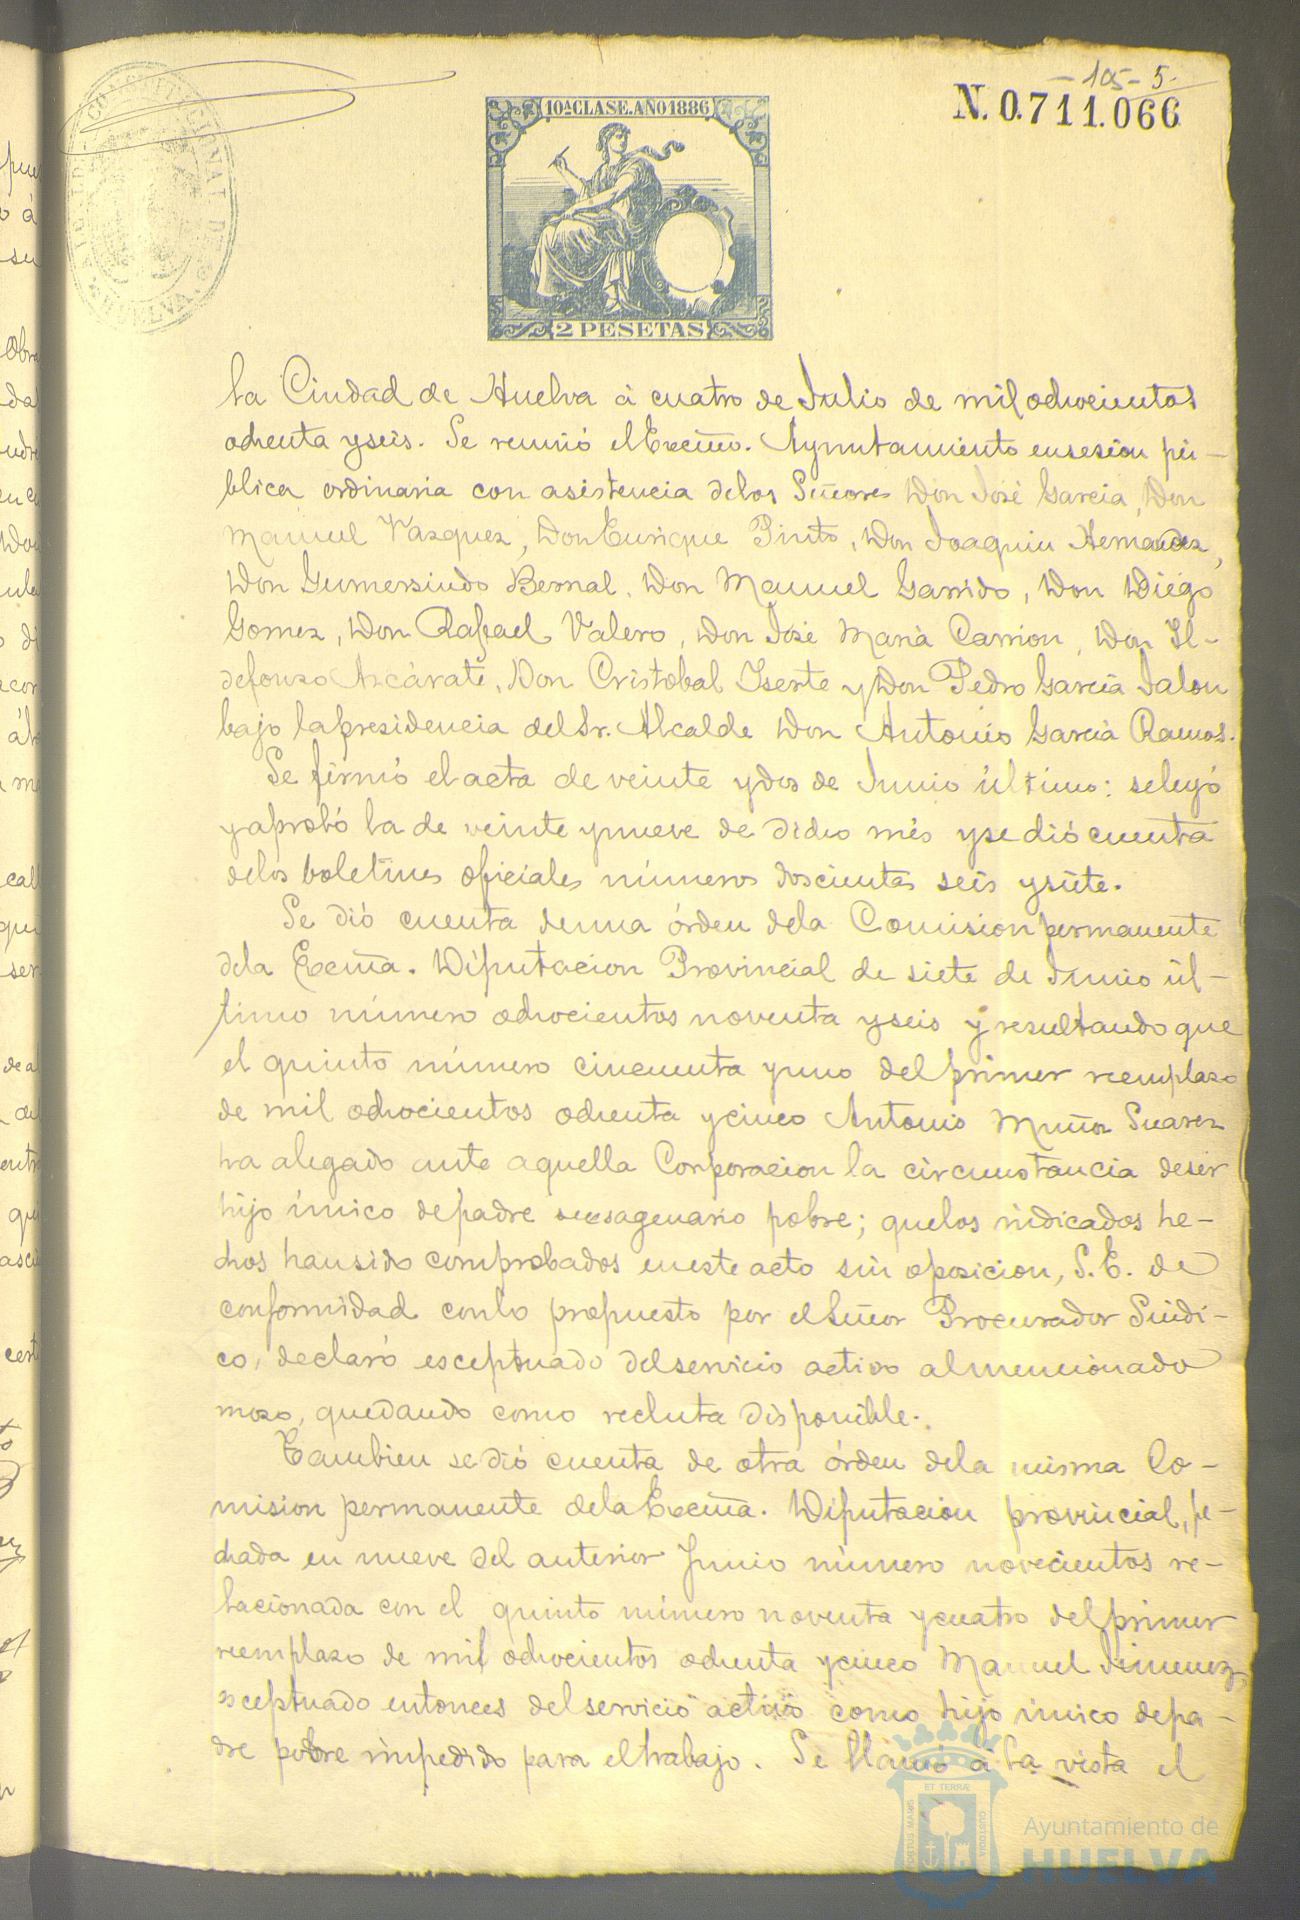 - 105 - 5 -
N. 0.711.066
10ª CLASE. AÑO 1886
2 PESETAS
CONSTITUCIONAL DE
HUELVA
la Ciudad de Huelva á cuatro de Julio de mil ochocientos
ochenta y seis. Se reunió el Excmo. Ayuntamiento en sesion pú-
blica ordinaria con asistencia de los Señores Don José Garcia, Don
Manuel Vazquez, Don Enrique Pinto, Don Joaquin Hernandez,
Don Gumersindo Bernal, Don Manuel Garrido, Don Diégo
Gomez, Don Rafael Valero, Don José Maria Carrion, Don Il-
defonso Azcárate, Don Cristobal Iserte y Don Pedro Garcia Jalon
bajo la presidencia del Sr. Alcalde Don Antonio Garcia Ramos.
Se firmó el acta de veinte y dos de Junio último: se leyó
y aprobó la de veinte y nueve de dicho mes y se dió cuenta
de los boletines oficiales números doscientos seis y siete.
Se dió cuenta de una órden de la Comision permanente
de la Excma. Diputacion Provincial de siete de Junio úl-
timo número ochocientos noventa y seis y resultando que
el quinto número cincuenta y uno del primer reemplazo
de mil ochocientos ochenta y cinco Antonio Muñoz Suarez
ha alegado ante aquella Corporacion la circunstancia de ser
hijo único de padre sexsagenario pobre; que los indicados he-
chos han sido comprobados en este acto sin oposicion, S. E. de
conformidad con lo propuesto por el Señor Procurador Síndi-
co, declaró esceptuado del servicio activo al mencionado
mozo, quedando como recluta disponible.
Tambien se dió cuenta de otra órden de la misma Co-
mision permanente de la Excma. Diputacion provincial, fe-
chada en nueve del anterior Junio número novecientos re-
lacionada con el quinto número noventa y cuatro del primer
reemplazo de mil ochocientos ochenta y cinco Manuel Jimenez,
esceptuado entonces del servicio activo como hijo único de pa-
dre pobre impedido para el trabajo. Se llamó á la vista el
ET TERRÆ
PORTUS MARIS
CUSTODIA
Ayuntamiento de
HUELVA